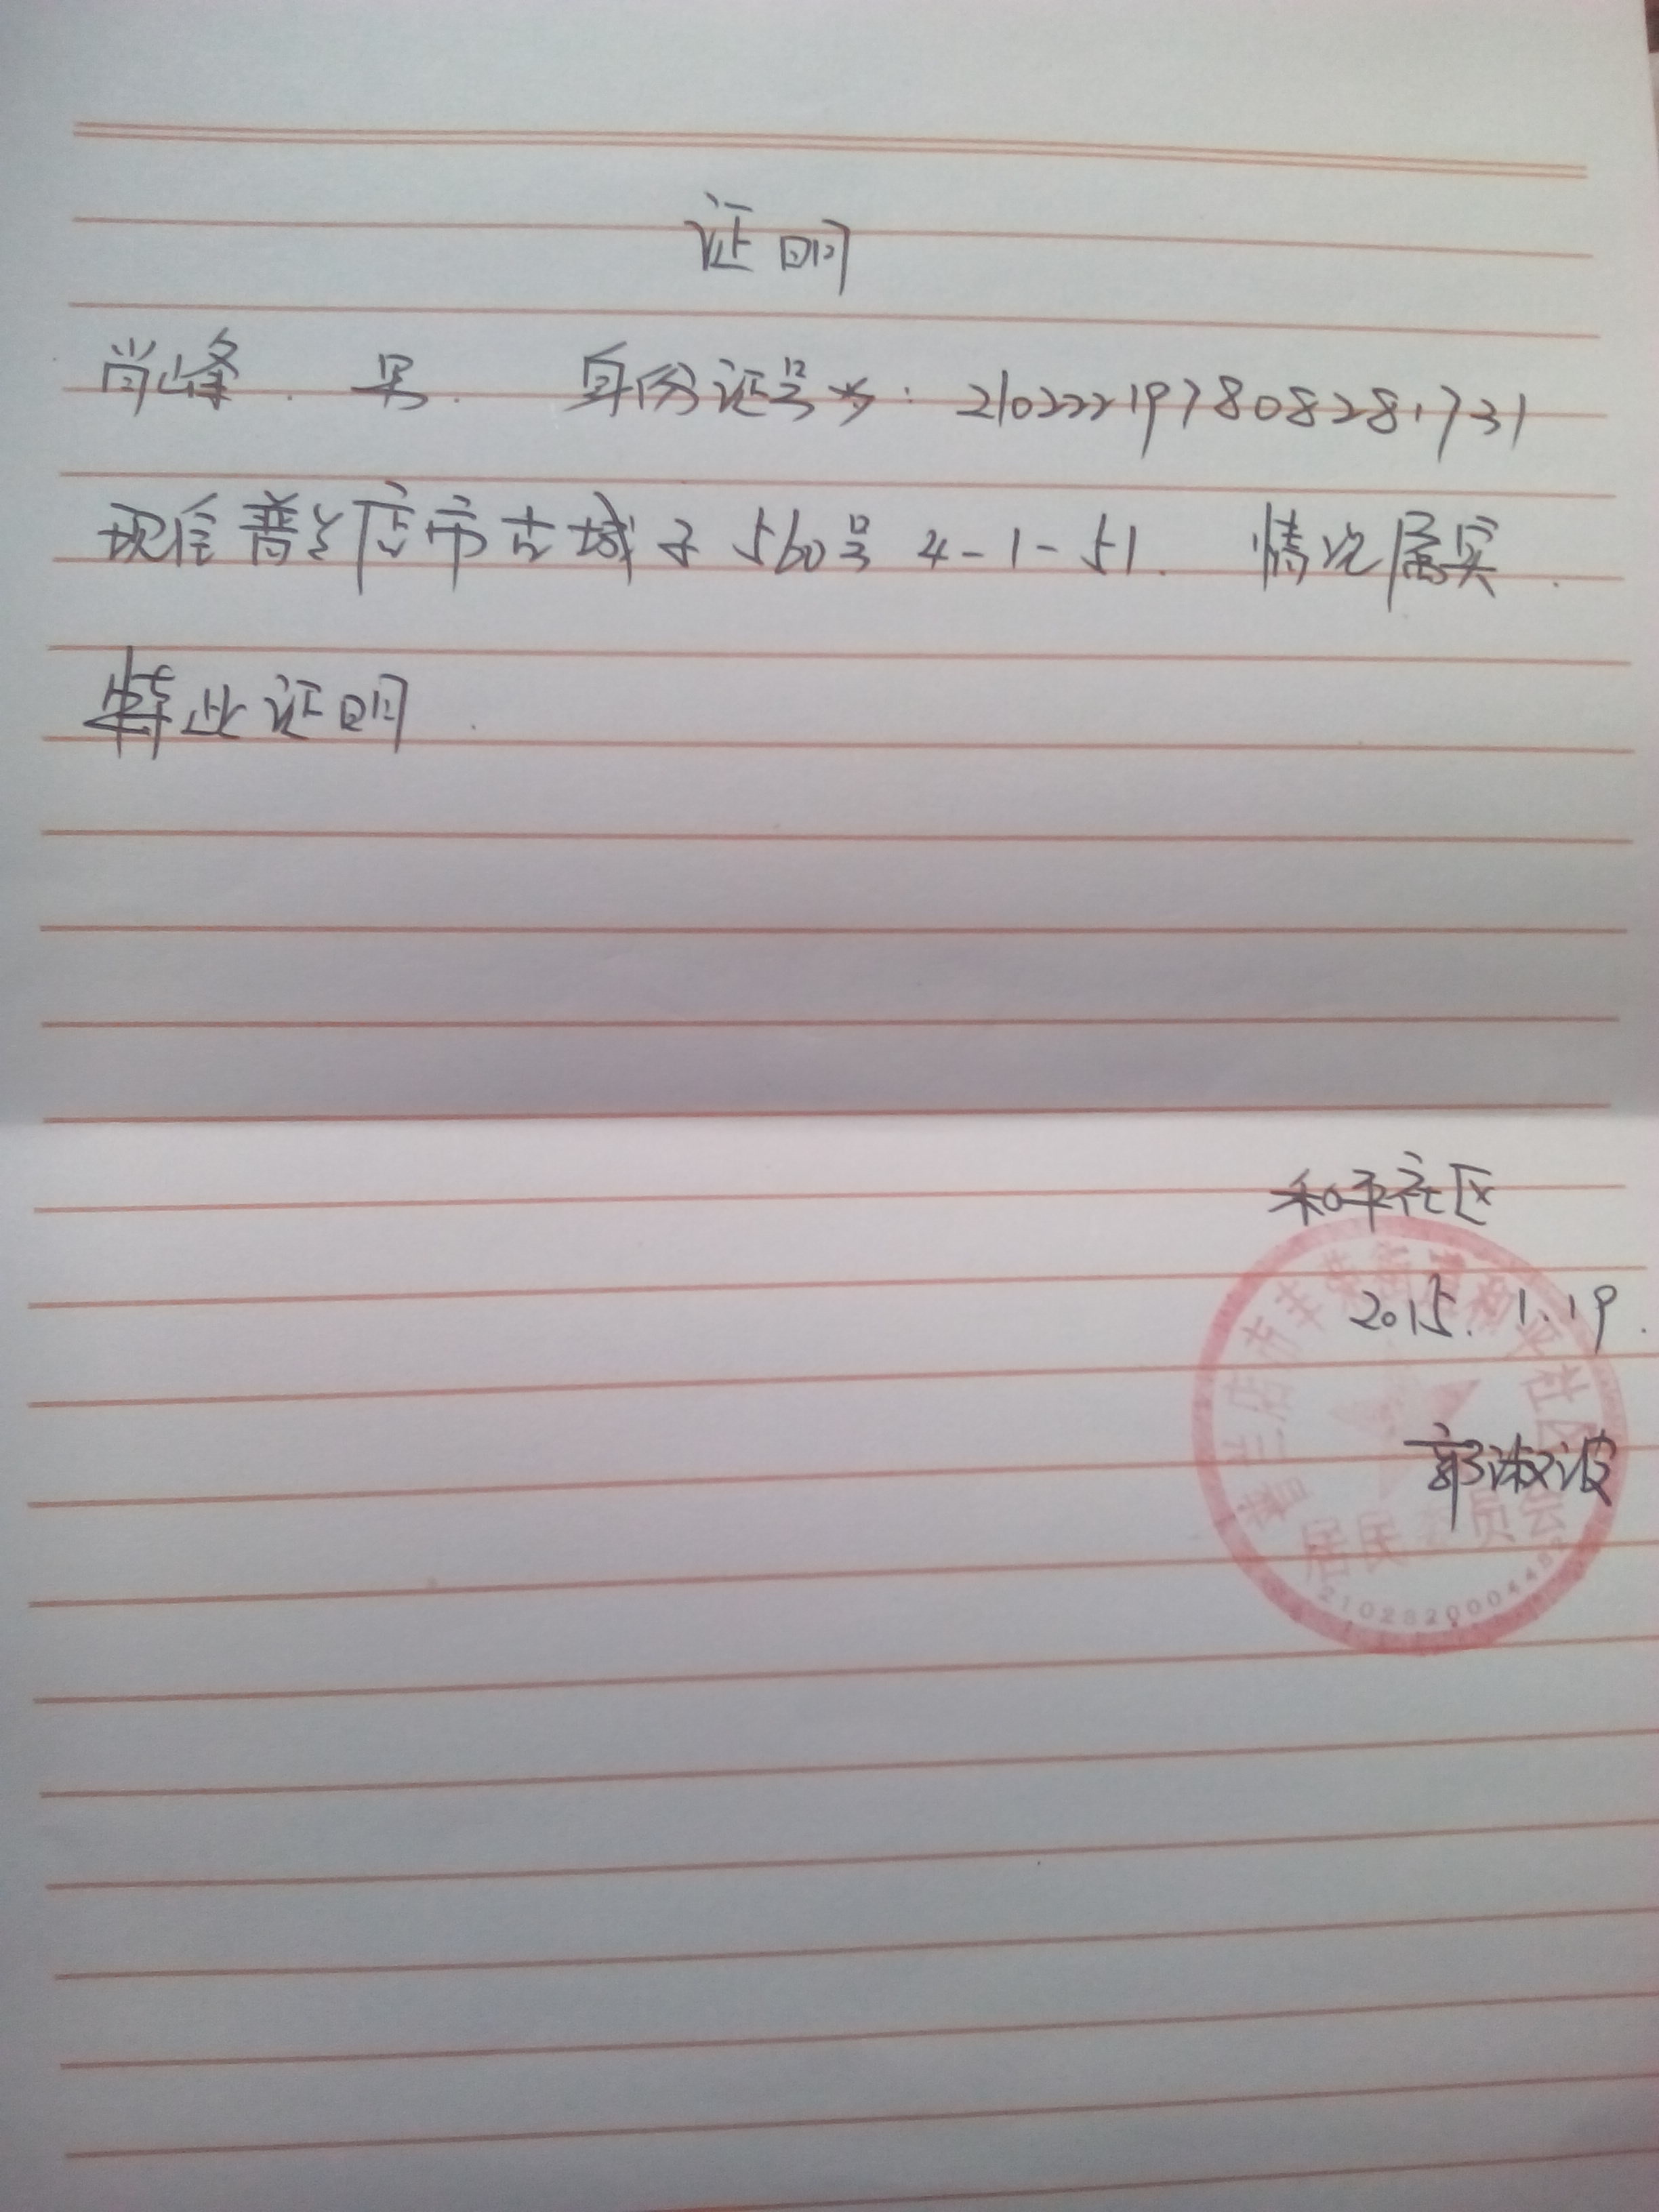 证明
尚峰. 男. 身份证号为: 210222197808281731
现住普兰店市古城子560号 4-1-51. 情况属实.
特此证明.
和平社区
2015.1.19.
郭淑波
普兰店市丰荣街道和平社区
居民委员会